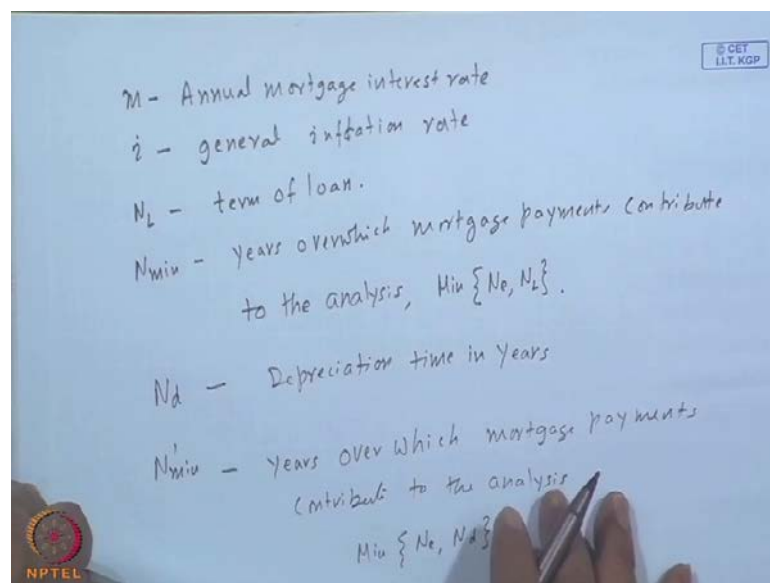 © CET
I.I.T. KGP
m - Annual mortgage interest rate
i - general inflation rate
NL - term of loan.
Nmin - years over which mortgage payments contribute
to the analysis, Min {Ne, NL}.
Nd - Depreciation time in years
N'min - years over which mortgage payments
contribute to the analysis
Min {Ne, Nd}
NPTEL